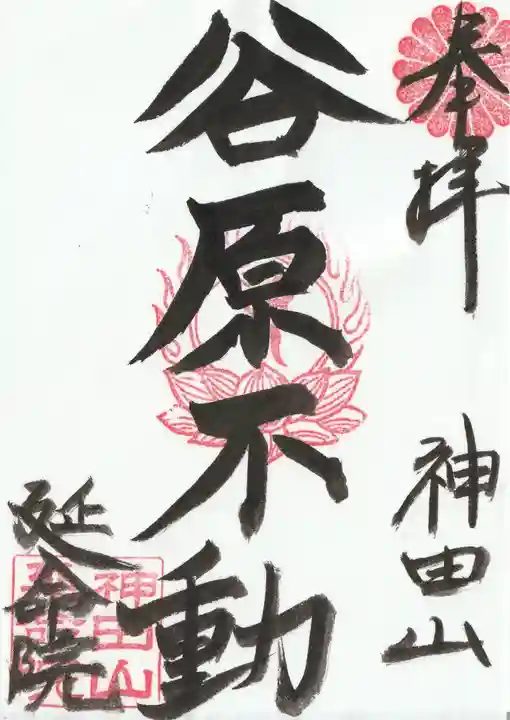 奉拝
神田山
谷原不動
延命院
神田山